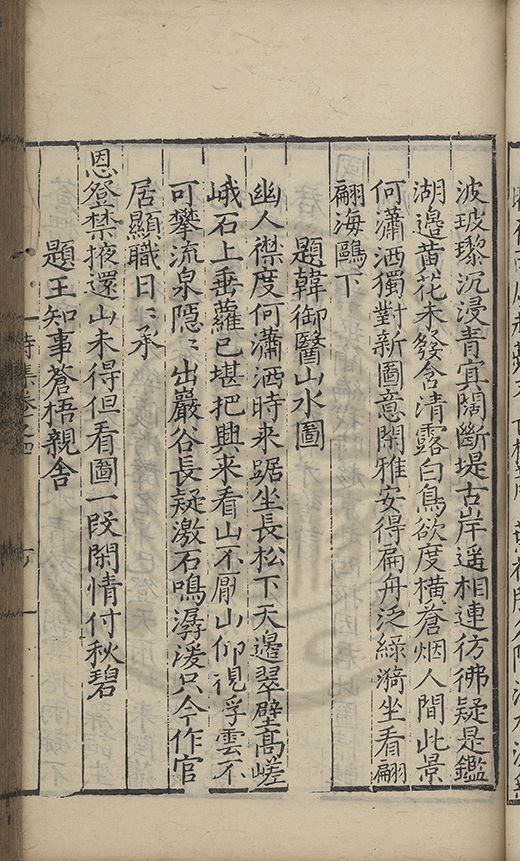 波玻瓈沉浸青冥闊斷堤古岸遥相連彷彿疑是鑑
湖邊黄花未發含清露白鳥欲度橫蒼烟人間此景
何瀟洒獨對新圖意閑雅安得扁舟泛綠漪坐看翩
翩海鷗下
題韓御醫山水圖
幽人襟度何瀟洒時来踞坐長松下天邉翠壁髙嵯
峨石上垂蘿已堪把興来看山不𠛹山仰視浮雲不
可攀流泉隠〻出巖谷長疑激石鳴潺湲只今作官
居顯職日〻承
恩登禁掖還山未得但看圖一段閑情付秋碧
題王知事蒼梧親舍
詩集卷之四